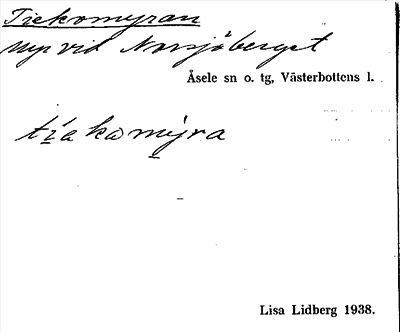 Tiekomyran
myr vid Norrsjöberget
Åsele sn o. tg, Västerbottens l.
tíakamy̆ra
Lisa Lidberg 1938.